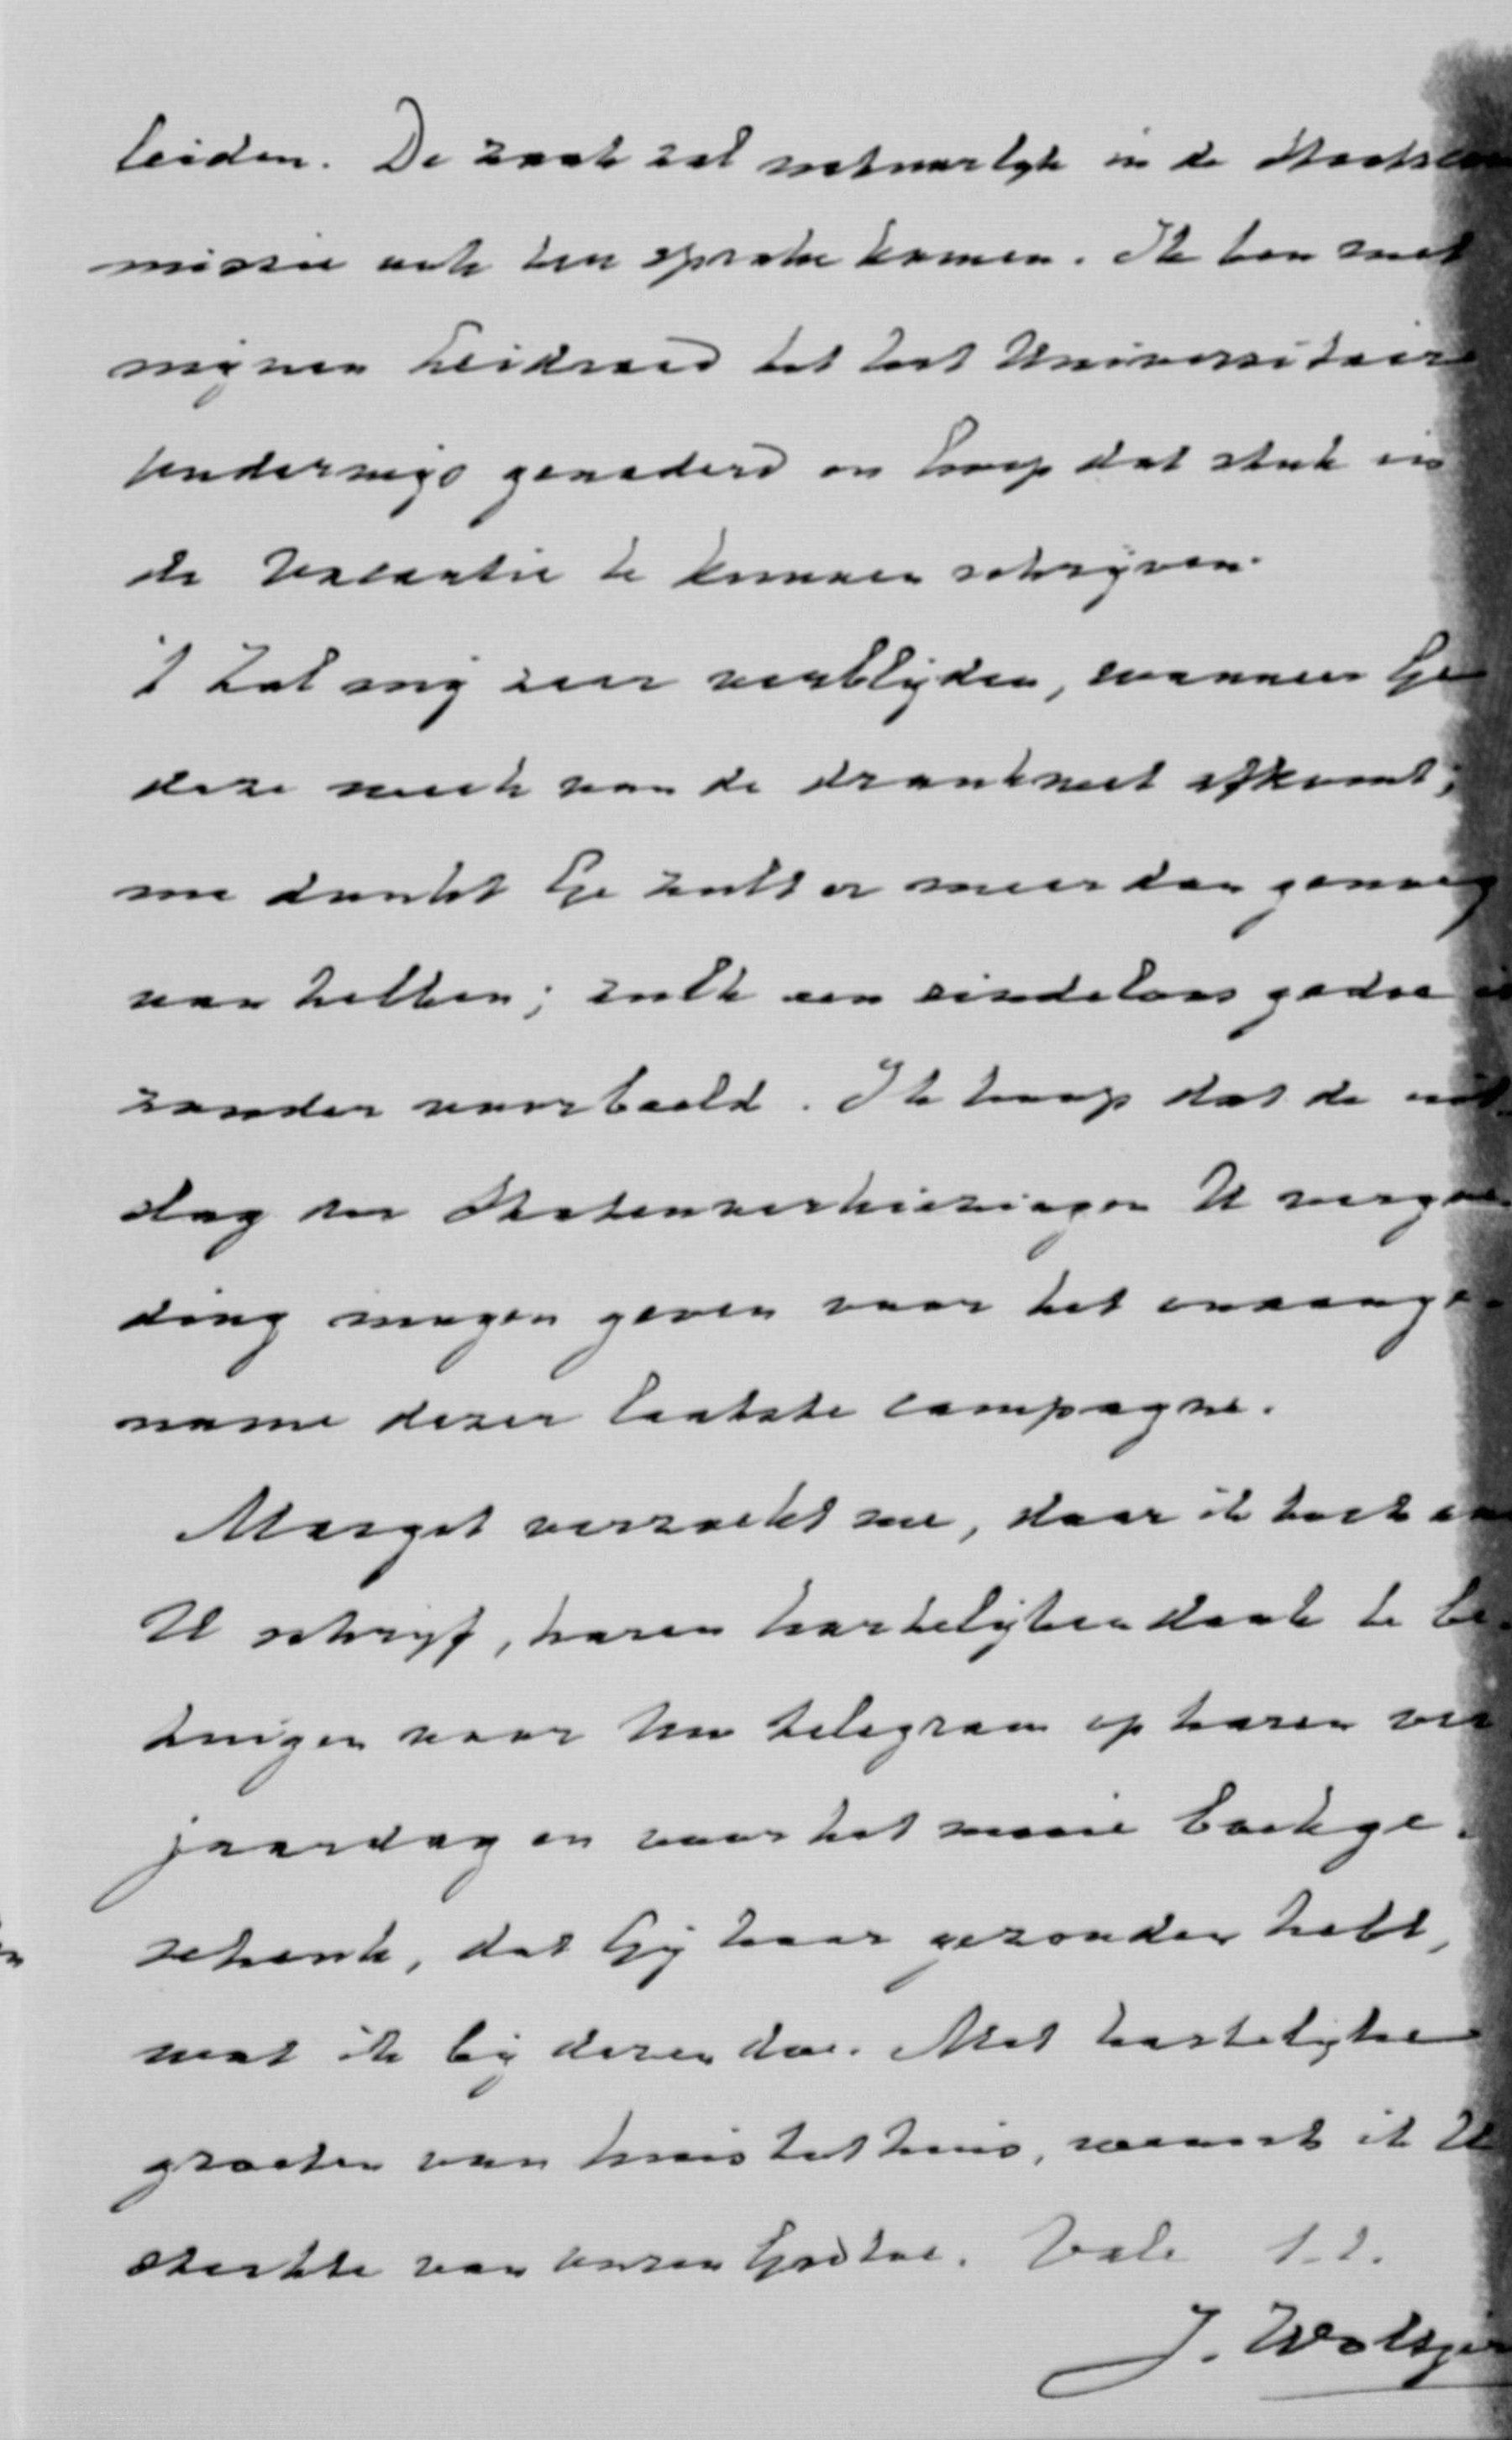 leiden. De zaak zal natuurlyk in de Staatscom
missie ook ter sprake komen. Ik ben met
mijnen Leidraad tot het Universitaire
onderwijs genaderd en hoop dat stuk in
de vacantie te kunnen schrijven.
't Zal mij zeer verblijden, wanneer Ge
deze week van de drankwet afkomt;
me dunkt Ge zult er meer dan genoeg
van hebben; zulk een eindeloos gedoe is
zonder voorbeeld. Ik hoop dat de uit
slag der Statenverkiezingen U vergoe
ding mogen geven voor het onaange
name dezer laatste campagne.
Marget verzoekt me, daar ik toch aan
U schrijf, haren hartelijken dank te be
tuigen voor Uw telegram op haren ver
jaardag en voor het mooie boekge
schenk, dat Gij haar gezonden hebt,
wat ik bij dezen doe. Met hartelijke
groeten van huis tot huis, wensch ik U
sterkte van onzen God toe. Vale t.t.
J. Woltjer